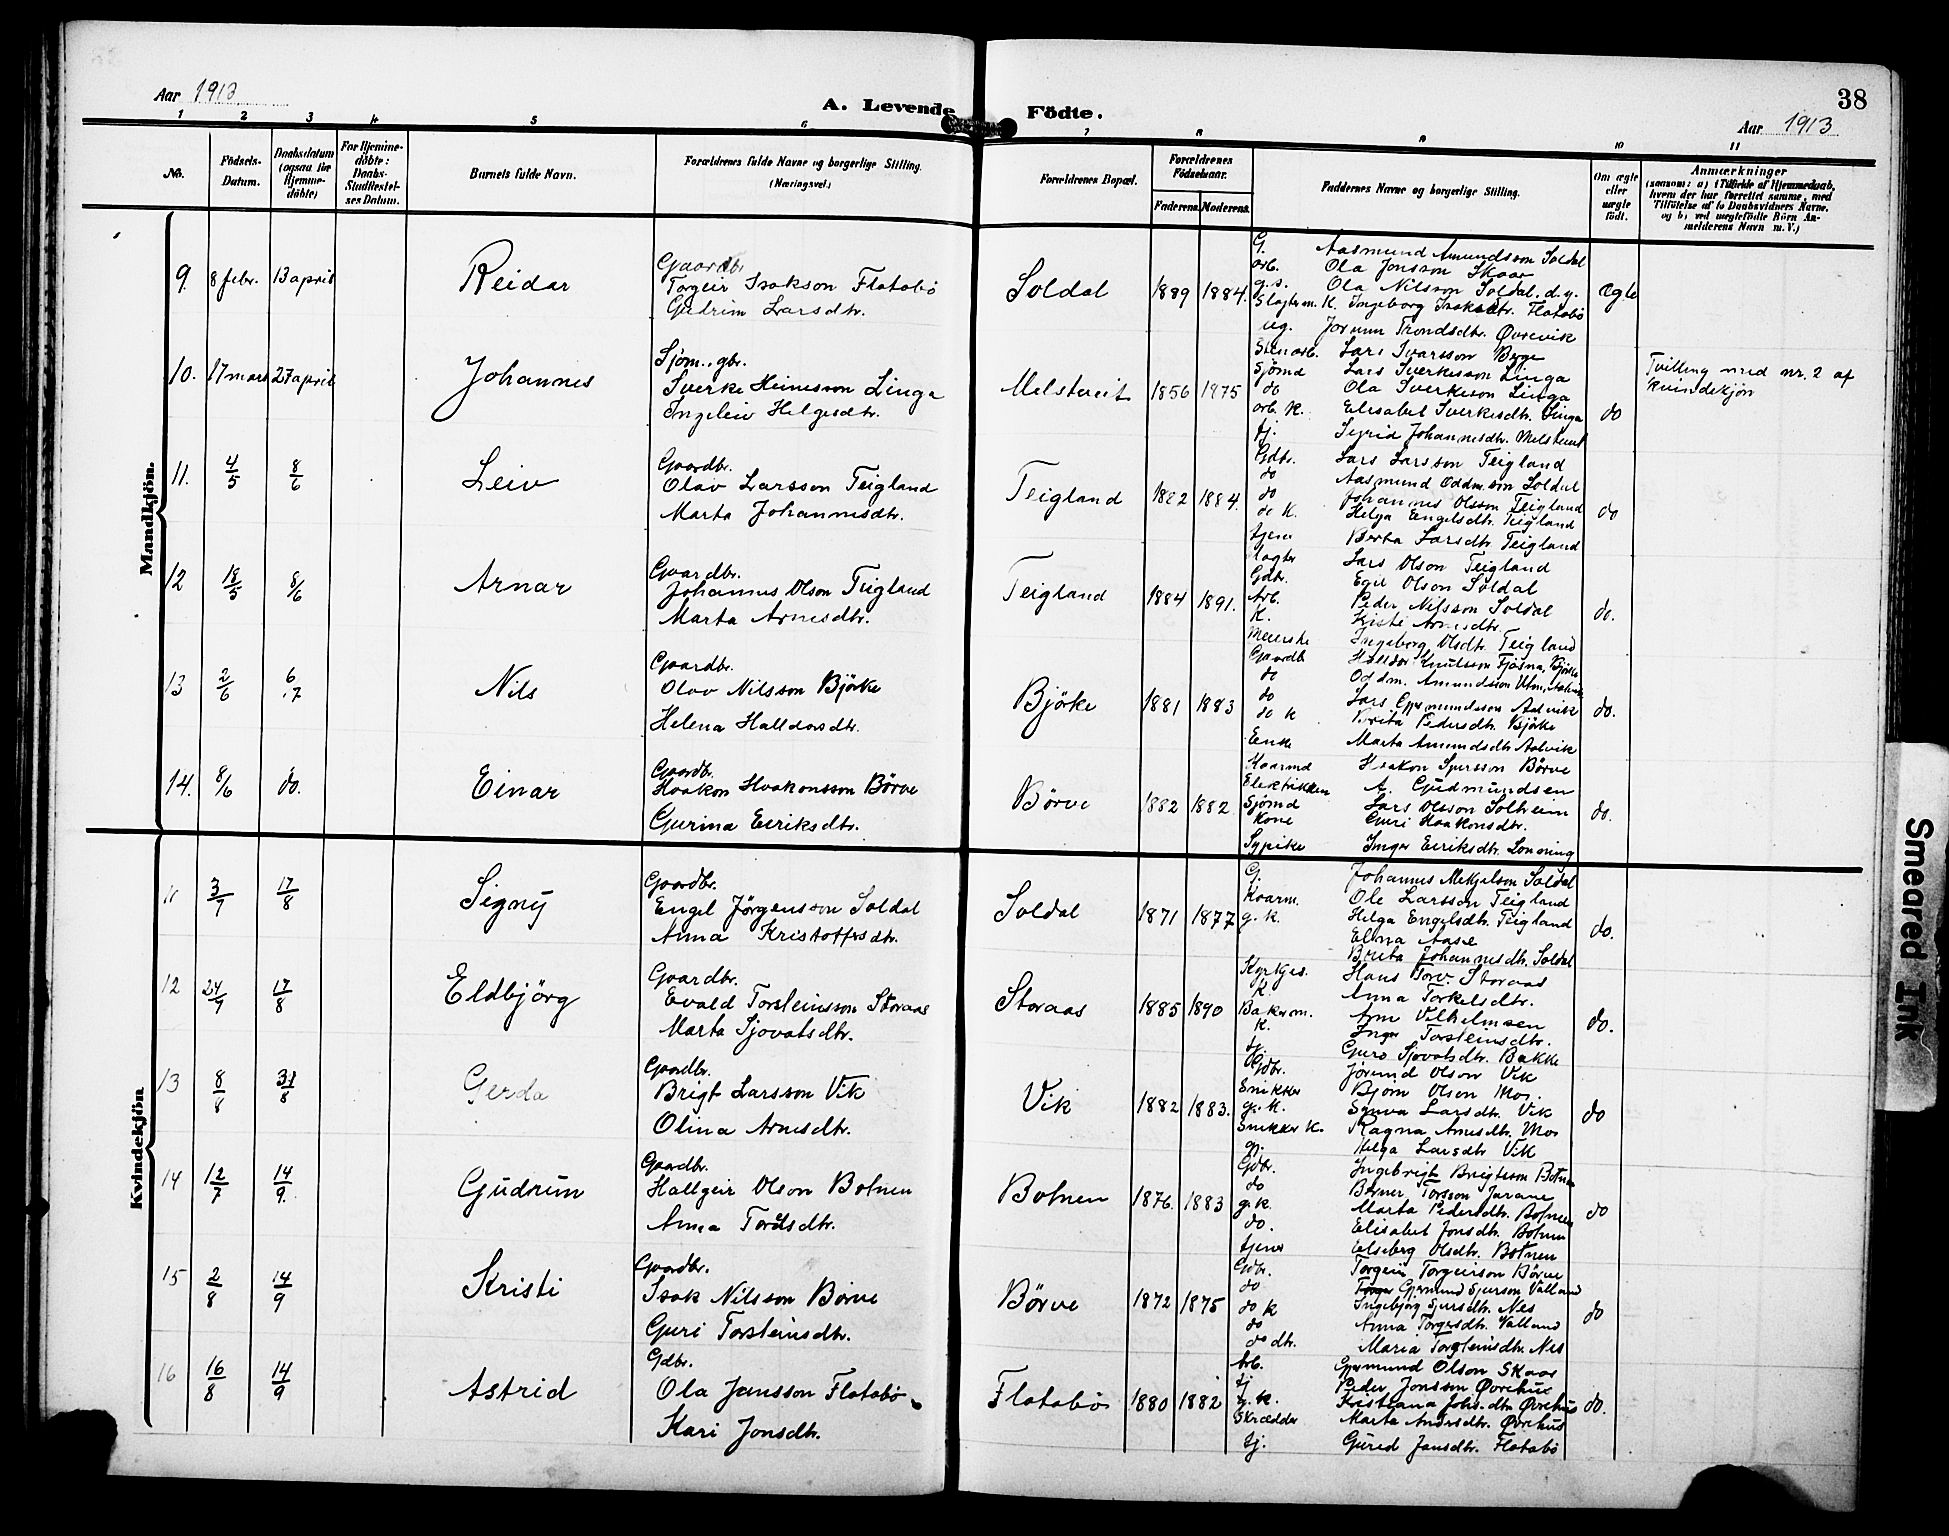 38
Aar 1913
A. Levende Födte.
Aar 1913
1 2 3 4 5 6 7 8 9 10 11
No.
Födsels-Datum.
Daabsdatum (ogsaa for Hjemme-döbte)
For Hjemme-döbte: Daabs-Stadfæstel-ses Datum.
Barnets fulde Navn.
Forældrenes fulde Navne og borgerlige Stilling.
(Næringsvei.)
Forældrenes Bopæl.
Forældrenes Födselsaar.
Faderens. Moderens.
Faddernes Navne og borgerlige Stilling.
Om ægte eller uægte födt.
Anmærkninger
(saasom: a) i Tilfælde af Hjemmedaab,
hvem der har forrettet samme, med
Tilföielse af to Daabsvidners Navne,
og b) ved uægtefödte Börn An-
melderens Navn m. V.)
Mandkjön.
9. 8 febr. 13 april Reidar
Gaardbr.
Torgeir Isakson Flatabö
Gudrun Larsdtr.
Soldal 1889 1884. ægte
G. Aasmund Amundsson Soldal
arb. Ola Jonsson Skaar
g.s. Ola Nilsson Soldal. d.y.
Slagterm. K. Ingeborg Isaksdtr. Flatabö
ug. Jorunn Trondsdtr. Øvrevik
10. 17 mars 27 april Johannes
Sjöm., gbr.
Sverke Heinesson Linga
Ingeleiv Helgesdtr.
Melstveit 1856 1975 do
Stenarb. Lars Ivarsson Berge
Sjömd Lars Sverkesson Linga
do Ola Sverkeson Linga
arb. K. Elisabet Sverkesdtr. Linga
tj. Sigrid Johannesdtr. Melstveit
Tvilling med nr. 2 af
kvindekjön
11. 4/5 8/6 Leiv
Gaardbr.
Olav Larsson Teigland
Marta Johannesdtr.
Teigland 1882 1884. do
Gdbr. Lars Larsson Teigland
do Aasmund Oddmson Soldal
do Johannes Olsson Teigland
do K. Helga Engelsdtr. Teigland
tjen Berta Larsdtr Teigland
12 18/5 8/6 Arnar
Gaardbr.
Johannes Olson Teigland
Marta Arnesdtr.
Teigland 1884 1891. do.
slagter Lars Olson Teigland
Gdbr. Egil Olson Soldal
Arb. Peder Nilsson Soldal
K. Kristi Arnesdtr.
Meierske Ingeborg Olsdtr. Teigland
13 2/6 6/7 Nils
Gaardbr.
Olav Nilsson Björke
Helena Halldorsdtr.
Björke 1881 1883 do.
Gaardb Halldor Knutsson Fjösna, Björke
do Oddm. Amundsson Utm, Aalvik
do Lars Aalvik
do K Brita Pedersdtr. Björke
Enke Marta Amundsdtr Aalvik
14. 8/6 do. Einar
Gaardb.
Haakon Haakonsson Börve
Gurina Eeriksdtr.
Börve 1882 1882 do.
Kaarmd Haakon Sjursson Börve
Elektriker A. Gudmundsen
Sjömd Lars Olsson Solheim
Kone Guri Haakonsdtr.
Sypike Inger Eeriksdtr. Lonning
Kvindekjön
11 3/7 17/8 Signy
Gaardbr.
Engel Jörgensson Soldal
Anna Kristoffersdtr.
Soldal 1871 1877 do.
G. Johannes Mikjalson Soldal
Kaarm. Ole Larsson Teigland
g.k. Helga Engelsdtr. Teigland
Elina Aase
Brita Johannesdtr. Soldal
12 24/7 17/8 Eldbjörg
Gaardbr.
Evald Torsteinsson Storaas
Marta Sjovatsdtr.
Storaas 1885 1890 do.
Kyrkjes. Hans Torv. Storaas
K. Anna Torkelsdtr.
Bakerm. Arn Vilhelmsen
K. Inger Torsteinsdtr.
tj. Guro Sjovatsdtr. Bakke
13 8/8 31/8 Gerda
Gaardbr.
Brigt Larsson Vik
Olina Arnesdtr.
Vik 1882 1883. do
Gdbr. Jörund Olson Vik
Snikker Bjorn Olson Mo.
g.k. Synva Larsdtr. Vik
Snikker K. Ragna Arnesdtr. Mo
gj. Helga Larsdtr Vik
14 12/7 14/9. Gudrun
Gaardbr.
Hallgeir Olson Botnen
Anna Tordsdtr.
Botnen 1876. 1883 do
Gdbr. Ingebrigt Brigtsson Botnen
do Berner Torsson Jarane
g.k. Marta Pedersdtr. Botnen
do. Elisabet Jonsdtr. Botnen
tjener Elseberg Olsdtr. Botnen
15 2/8 14/9 Kristi
Gaardbr.
Isak Nilsson Börve
Guri Torsteinsdtr.
Börve 1872 1875 do
Gdbr. Torgeir Torgeirson Börve
do Gjermund Sjurson Valland
do K Ingebjörg Sjursdtr. Nes
do Anna Torgersdtr. Valland
do dtr. Maria Torsteinsdtr. Nes
16 16/8 14/9 Astrid
Gdbr.
Ola Jansson Flatabö
Kari Jonsdtr.
Flatabö 1880 1882 do.
Arb. Gjermund Olson Skaar
tj Peder Jonsson Øvrehus
g.k. Kristiana Johs.dtr Øvrehus
Skrædder Marta Andersdtr. Øvrehus
tj. Gured Jansdtr. Flatabö
Smeared Ink